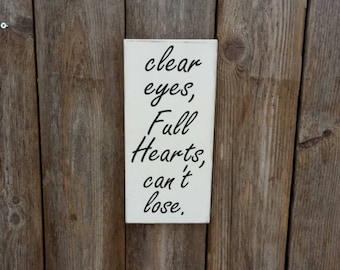 clear
eyes,
Full
Hearts,
can't
lose.